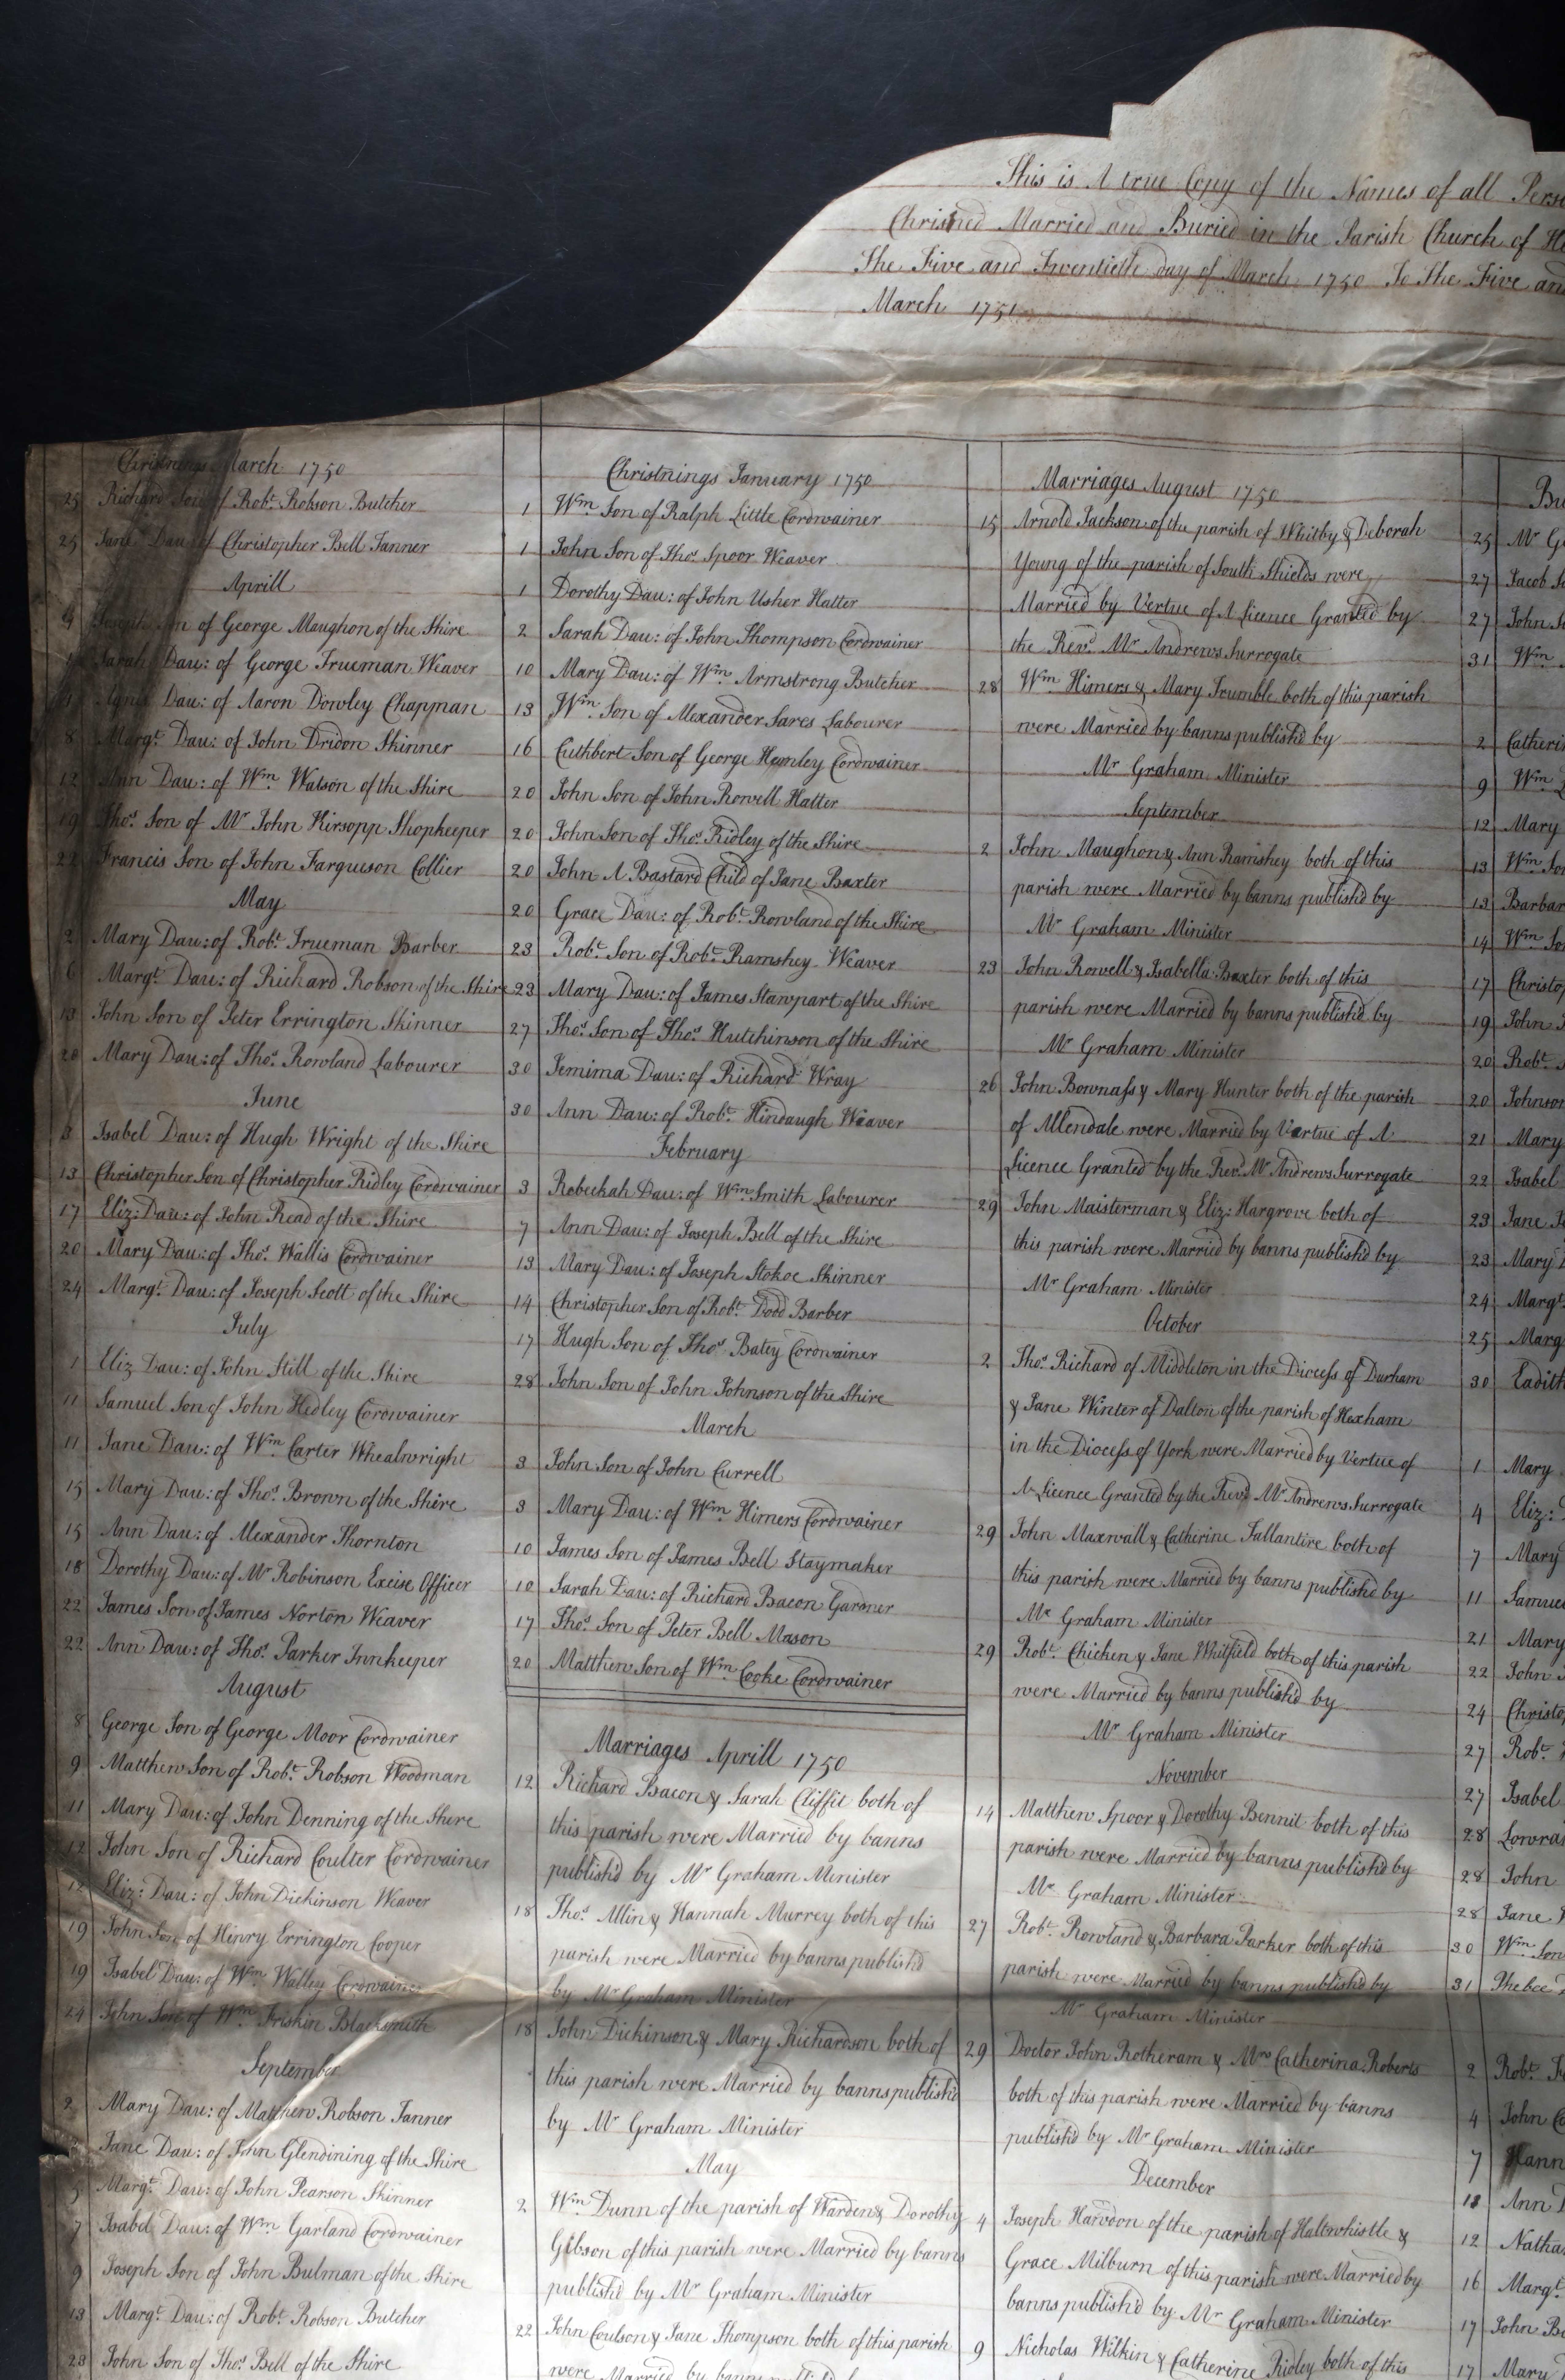 This is A true Copy of the Names of all
Christned Married and Buried in the Parish Church of
The Five and Twentieth day of March 1750 To The Five and
March 1751
Christnings March 1750
25 Richard Son of Robt. Robson Butcher
25 Jane Dau: of Christopher Bell Tanner
Aprill
4 Joseph Son of George Maughon of the Shire
Sarah Dau: of George Trueman Weaver
Agnes Dau: of Aaron Dowley Chapman
8 Margt. Dau: of John Dridon Skinner
12 Ann Dau: of Wm. Watson of the Shire
19 Thos. Son of Mr John Kirsopp Shopkeeper
22 Francis Son of John Farguison Collier
May
2 Mary Dau: of Robt. Trueman Barber
6 Margt. Dau: of Richard Robson of the Shire
13 John Son of Peter Errington Skinner
20 Mary Dau: of Thos. Rowland Labourer
June
3 Isabel Dau: of Hugh Wright of the Shire
13 Christopher Son of Christopher Ridley Cordwainer
17 Eliz: Dau: of John Read of the Shire
20 Mary Dau: of Thos. Wallis Cordwainer
24 Margt. Dau: of Joseph Scott of the Shire
July
1 Eliz Dau: of John Still of the Shire
11 Samuel Son of John Hedley Cordwainer
11 Jane Dau: of Wm. Carter Whealwright
15 Mary Dau: of Thos. Brown of the Shire
15 Ann Dau: of Alexander Thornton
18 Dorothy Dau: of Mr Robinson Excise Officer
22 James Son of James Norton Weaver
22 Ann Dau: of Thos. Parker Innkeeper
August
8 George Son of George Moor Cordwainer
9 Matthew Son of Robt. Robson Woodman
11 Mary Dau: of John Denning of the Shire
12 John Son of Richard Coulter Cordwainer
12 Eliz: Dau: of John Dickinson Weaver
19 John Son of Henry Errington Cooper
19 Isabel Dau: of Wm. Walley Cordwainer
24 John Son of Wm. Friskin Blacksmith
September
2 Mary Dau: of Matthew Robson Tanner
Jane Dau: of John Glendining of the Shire
5 Margt. Dau: of John Pearson Skinner
7 Isabel Dau: of Wm. Garland Cordwainer
9 Joseph Son of John Bulman of the Shire
13 Margt. Dau: of Robt. Robson Butcher
23 John Son of Thos. Bell of the Shire
Christnings January 1750
1 Wm. Son of Ralph Little Cordwainer
1 John Son of Thos. Spoor Weaver
1 Dorothy Dau: of John Usher Hatter
2 Sarah Dau: of John Thompson Cordwainer
10 Mary Dau: of Wm. Armstrong Butcher
13 Wm. Son of Alexander Sares Labourer
16 Cuthbert Son of George Hewnley Cordwainer
20 John Son of John Rowell Hatter
20 John Son of Thos. Ridley of the Shire
20 John A Bastard Child of Jane Baxter
20 Grace Dau: of Robt. Rowland of the Shire
23 Robt. Son of Robt. Ramshey Weaver
23 Mary Dau: of James Stawpart of the Shire
27 Thos. Son of Thos. Hutchinson of the Shire
30 Jemima Dau: of Richard Wray
30 Ann Dau: of Robt. Hindaugh Weaver
February
3 Rebeckah Dau: of Wm. Smith Labourer
7 Ann Dau: of Joseph Bell of the Shire
13 Mary Dau: of Joseph Stokoe Skinner
14 Christopher Son of Robt. Dodd Barber
17 Hugh Son of Thos. Batey Cordwainer
28 John Son of John Johnson of the Shire
March
3 John Son of John Currell
3 Mary Dau: of Wm. Himers Cordwainer
10 James Son of James Bell Staymaker
10 Sarah Dau: of Richard Bacon Gardner
17 Thos. Son of Peter Bell Mason
20 Matthew Son of Wm. Cooke Cordwainer
Marriages Aprill 1750
12 Richard Bacon & Sarah Cliffit both of
this parish were Married by banns
publish'd by Mr Graham Minister
18 Thos. Allin & Hannah Murrey both of this
parish were Married by banns publish'd
by Mr Graham Minister
18 John Dickinson & Mary Richardson both of
this parish were Married by banns publish'd
by Mr Graham Minister
May
2 Wm. Dunn of the parish of Warden & Dorothy
Gibson of this parish were Married by banns
publish'd by Mr Graham Minister
22 John Coulson & Jane Thompson both of this parish
were Married by banns publish'd by
Marriages August 1750
15 Arnold Jackson of the parish of Whitby & Deborah
Young of the parish of South Shields were
Married by Vertue of A Licence Granted by
the Revd. Mr Andrews Surrogate
28 Wm. Himers & Mary Trumble both of this parish
were Married by banns publish'd by
Mr Graham Minister
September
2 John Maughon & Ann Ramshey both of this
parish were Married by banns publish'd by
Mr Graham Minister
23 John Rowell & Isabella Baxter both of this
parish were Married by banns publish'd by
Mr Graham Minister
26 John Bownass & Mary Hunter both of the parish
of Allendale were Married by Vertue of A
Licence Granted by the Revd. Mr Andrews Surrogate
29 John Maisterman & Eliz: Hargrove both of
this parish were Married by banns publish'd by
Mr Graham Minister
October
2 Thos. Richard of Middleton in the Diocess of Durham
& Jane Winter of Dalton of the parish of Hexham
in the Diocess of York were Married by Vertue of
A Licence Granted by the Revd. Mr Andrews Surrogate
29 John Maxwall & Catherine Tallantire both of
this parish were Married by banns publish'd by
Mr Graham Minister
29 Robt. Chicken & Jane Whitfield both of this parish
were Married by banns publish'd by
Mr Graham Minister
November
14 Matthew Spoor & Dorothy Bennit both of this
parish were Married by banns publish'd by
Mr Graham Minister
27 Robt. Rowland & Barbara Parker both of this
parish were Married by banns publish'd by
Mr Graham Minister
29 Doctor John Rotheram & Mrs Catherina Roberts
both of this parish were Married by banns
publish'd by Mr Graham Minister
December
4 Joseph Hawdon of the parish of Haltwhistle &
Grace Milburn of this parish were Married by
banns publish'd by Mr Graham Minister
9 Nicholas Wilkin & Catherine Ridley both of this
25 Mr
27 Jacob
27 John
31 Wm.
2
9 Wm.
12 Mary
13 Wm.
13
14 Wm.
17
19 John
20 Robt.
20
21 Mary
22 Isabel
23 Jane
23 Mary
24 Margt.
25
30
1 Mary
4 Eliz:
7 Mary
11
21 Mary
22 John
24
27 Robt.
27 Isabel
28
28 John
28 Jane
30 Wm. Son
31 Phebee
2 Robt.
4 John
7
12 Ann
12
16 Margt.
17 John
17 Mary